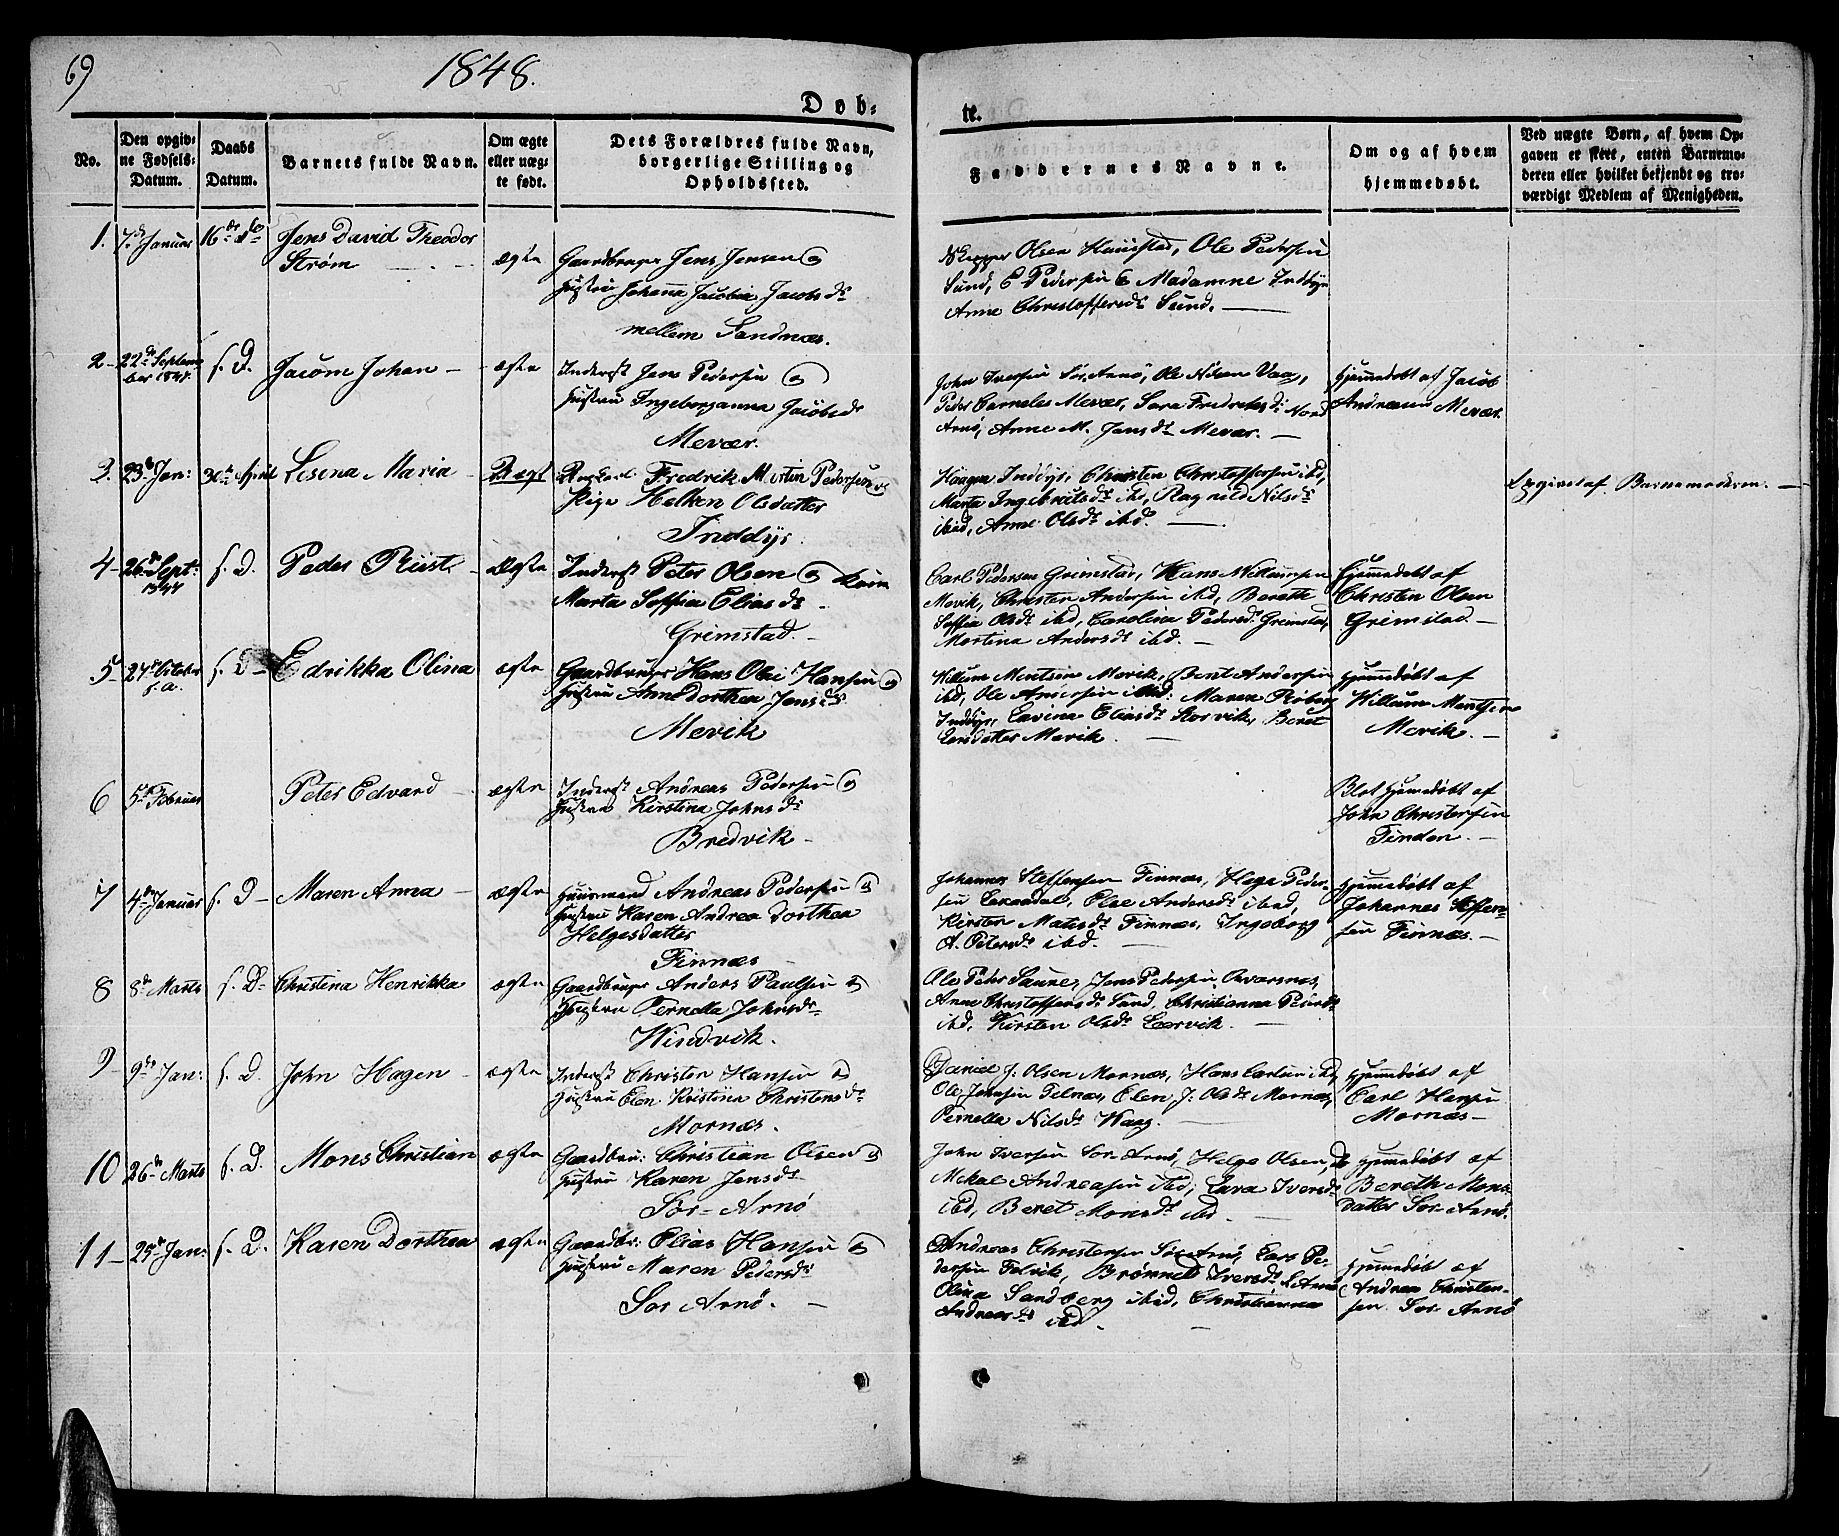 69
1848.
Døb-
te.
No.
Den opgiv-
ne Fødsels-
Datum.
Daabs
Datum.
Barnets fulde Navn.
Om ægte
eller uæg-
te født.
Dets Forældres fulde Navn,
borgerlige Stilling og
Opholdssted.
Faddernes Navne.
Om og af hvem
hjemmedøbt.
Ved uægte Børn, af hvem Op-
gaven er skeet, enten Barnemo-
deren eller hvilket bekjendt og tro-
værdigt Medlem af Menigheden.
1. 7de Januar 16de
Jens David Theodor
Strøm
ægte
Gaardbruger Jens Jensen og
Hustru Johanna Jacobia Jacobsd:
mellem Sandnæs.
Olsen Haugstad, Ole Pedersen
Sund, E Pedersen & Madamme Inddyr
Anne Christoffersd: Sund.
2 22de Septem-
ber
f. D.
Jacom Johan
ægte
Inderst Jens Pedersen og
Hustru Ingeborganna Jacobsd
Mevær.
John Iversen Sør-Arnø, Ole Nilsen Vaag,
Peder Corneles Mevær, Sara Fredriksd: Nord
Arnø, Anne M. Jensd: Mevær.
Hjemmedøbt af Jacob
Andreasen Mevær.
3. 23de Jan: 30te April
Lesena Maria
Uægt
Fredrik Martin Pedersen og
Pige Helken Olsdatter
Inddyr.
Haagen Inddyr, Christen Christoffersen ibid,
Marta Ingebrigtsd: ibd, Ragnild Nilsd:
ibid, Anne Olsd: ibd.
Opgivet af Barnemoderen.
4 26de Sept:
f. D.
Peder Rist
Ægte
Inderst Peter Olsen og Kone
Marta Soffia Eliasd:
Grimstad.
Carl Pedersen Grimstad, Hans Willumsen
Mevik, Christen Andersen ibd, Bereth
Soffia Olsd: ibd, Carolina Pedersd: Grimstad,
Martina Andersd: ibd.
Hjemmedøbt af
Christen Olsen
Grimstad.
5 27de October
f. a.
f. D
Edrikka Olina
ægte
Gaardbruger Hans Olai Hansen og
Hustru Anne Dorthea Jensd:
Mevik
Willum Mentsen Mevik, Bent Andersen
ibd, Ole Andersen ibid: Maren Roberg
Inddyr, Lavina Eliasd: Storvik, Beret
Larsdatter Mevik.
Hjemmedøbt af
Willum Mentsen
Mevik.
6 5te Februar
Peter Edvard
ægte
Inderst Andreas Pedersen og
Hustru Kirstina Johnsd:
Bredvik
Blot Hjemmedøbt af
John Christensen
Finden.
7 4de Januar f. D
Maren Anna
ægte
Huusmand Andreas Pedersen og
Hustru Karen Andrea Dorthea
Helgesdatter
Finnæs
Johannes Steffensen Finnæs, Helge Peder-
sen, Else Andersd: ibid,
Kirsten Matesd: Finnæs, Ingeborg
A. Petersd: ibd.
Hjemmedøbt af
Johannes Steffen-
sen Finnæs.
8 8de Marts f. D
Christina Henrikka
ægte
Gaardbruger Anders Paulsen og
Hustru Pernella Johnsd:
Windvik.
Ole Peter, Jens Pedersen,
Anne Christoffersd: Sund, Christianna Pedersd:
ibd, Kirsten Olsd: Lærvik.
9 9de Jan: f. D.
John Hagen
ægte
Inderst Christen Hansen og
Hustru Elen Kristina Christensd:
Mornæs.
Daniel J. Olsen Mornæs, Hans Carlsen ibd,
Ole Johnsen Telnæs, Elen J. Olsd: Mornæs,
Pernella Nilsd: Waag.
Hjemmedøbt af
Carl Hansen
Mornæs
10 26de Marts f. D.
Mons Christian
ægte
Gaardbru: Christian Olsen og
Hustru Karen Jensd:
Sør-Arnø
John Iversen Sør-Arnø, Helge Olsen,
Mekal Andreasen ibd, Lara Iversd:
ibd, Beret Monsd: ibd.
Hjemmedøbt af
Bereth Mons-
datter Sør-Arnø.
11 25de Jan: f. D.
Karen Dorthea
ægte
Gaardbr: Elias Hansen og
Hustru Maren Pedersd:
Sør Arnø.
Andreas Christensen Sør Arnø, Lars Pe-
dersen, Brønnel Iversd: S. Arnø
Olina Sandberg ibid, Christianna
Andreasd: ibd.
Hjemmedøbt af
Andreas Christen-
sen Sør Arnø